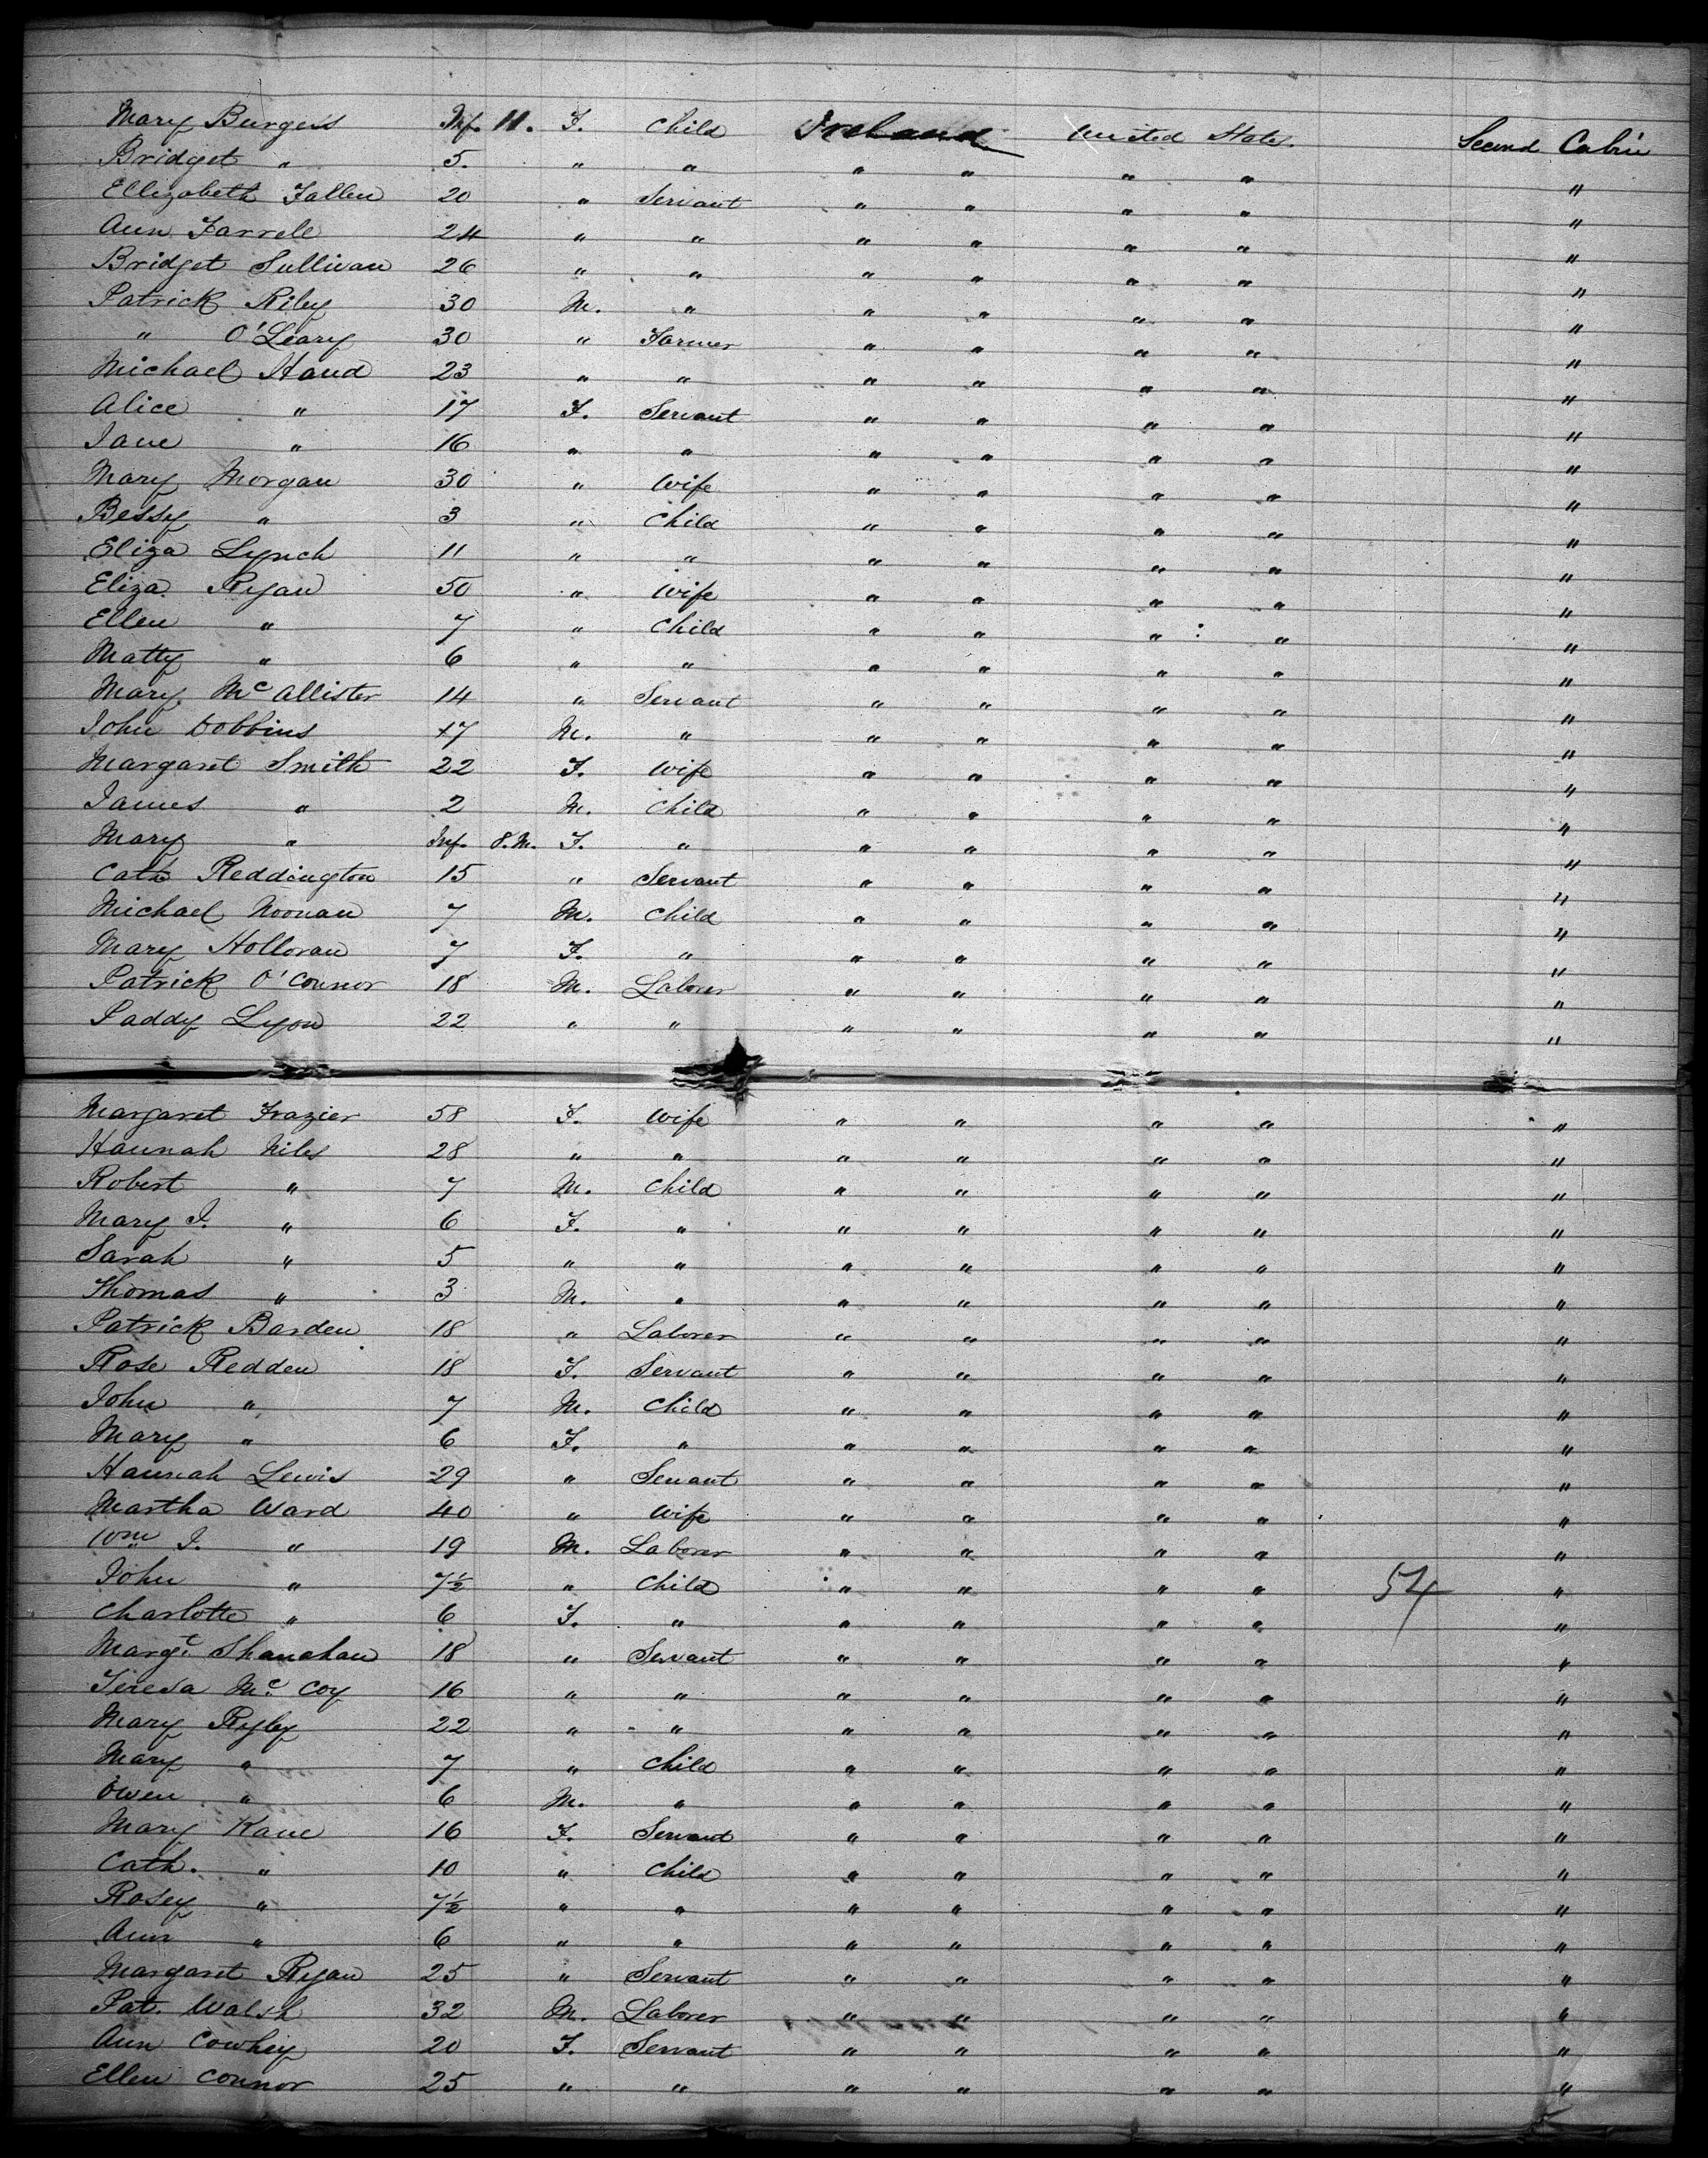 Mary Burgess Inf. 11. F. Child Ireland United States. Second Cabin
Bridget " 5. " " " " " " "
Ellizabeth Fallen 20 " Servant " " " " "
Ann Farrell 24 " " " " " " "
Bridget Sullivan 26 " " " " " " "
Patrick Riley 30 M. " " " " " "
" O'Leary 30 " Farmer " " " " "
Michael Hand 23 " " " " " " "
Alice " 17 F. Servant " " " " "
Jane " 16 " " " " " " "
Mary Morgan 30 " Wife " " " " "
Bessy " 3 " Child " " " " "
Eliza Lynch 11 " " " " " " "
Eliza Ryan 50 " Wife " " " " "
Ellen " 7 " Child " " " " "
Matty " 6 " " " " " " "
Mary McAllister 14 " Servant " " " " "
John Dobbins 17 M. " " " " " "
Margaret Smith 22 F. Wife " " " " "
James " 2 M. Child " " " " "
Mary " Inf. 8. M. F. " " " " " "
Cath Reddington 15 " Servant " " " " "
Michael Noonan 7 M. Child " " " " "
Mary Holloran 7 F. " " " " " "
Patrick O'Connor 18 M. Laborer " " " " "
Paddy Lyon 22 " " " " " " "
Margaret Frazier 58 F. Wife " " " " "
Hannah Niles 28 " " " " " " "
Robert " 7 M. Child " " " " "
Mary J. " 6 F. " " " " " "
Sarah " 5 " " " " " " "
Thomas " 3 M. " " " " " "
Patrick Barden 18 " Laborer " " " " "
Rose Redden 18 F. Servant " " " " "
John " 7 M. Child " " " " "
Mary " 6 F. " " " " " "
Hannah Lewis 29 " Servant " " " " "
Martha Ward 40 " Wife " " " " "
Wm J. " 19 M. Laborer " " " " "
John " 7½ " Child " " " " 54 "
Charlotte " 6 F. " " " " " "
Margt. Shanahan 18 " Servant " " " " "
Teresa Mc. Coy 16 " " " " " " "
Mary Ryley 22 " " " " " " "
Mary " 7 " Child " " " " "
Owen " 6 M. " " " " " "
Mary Kane 16 F. Servant " " " " "
Cath. " 10 " Child " " " " "
Rosey " 7½ " " " " " " "
Ann " 6 " " " " " " "
Margaret Ryan 25 " Servant " " " " "
Pat. Walsh 32 M. Laborer " " " " "
Ann Cowhey 20 F. Servant " " " " "
Ellen Connor 25 " " " " " " "